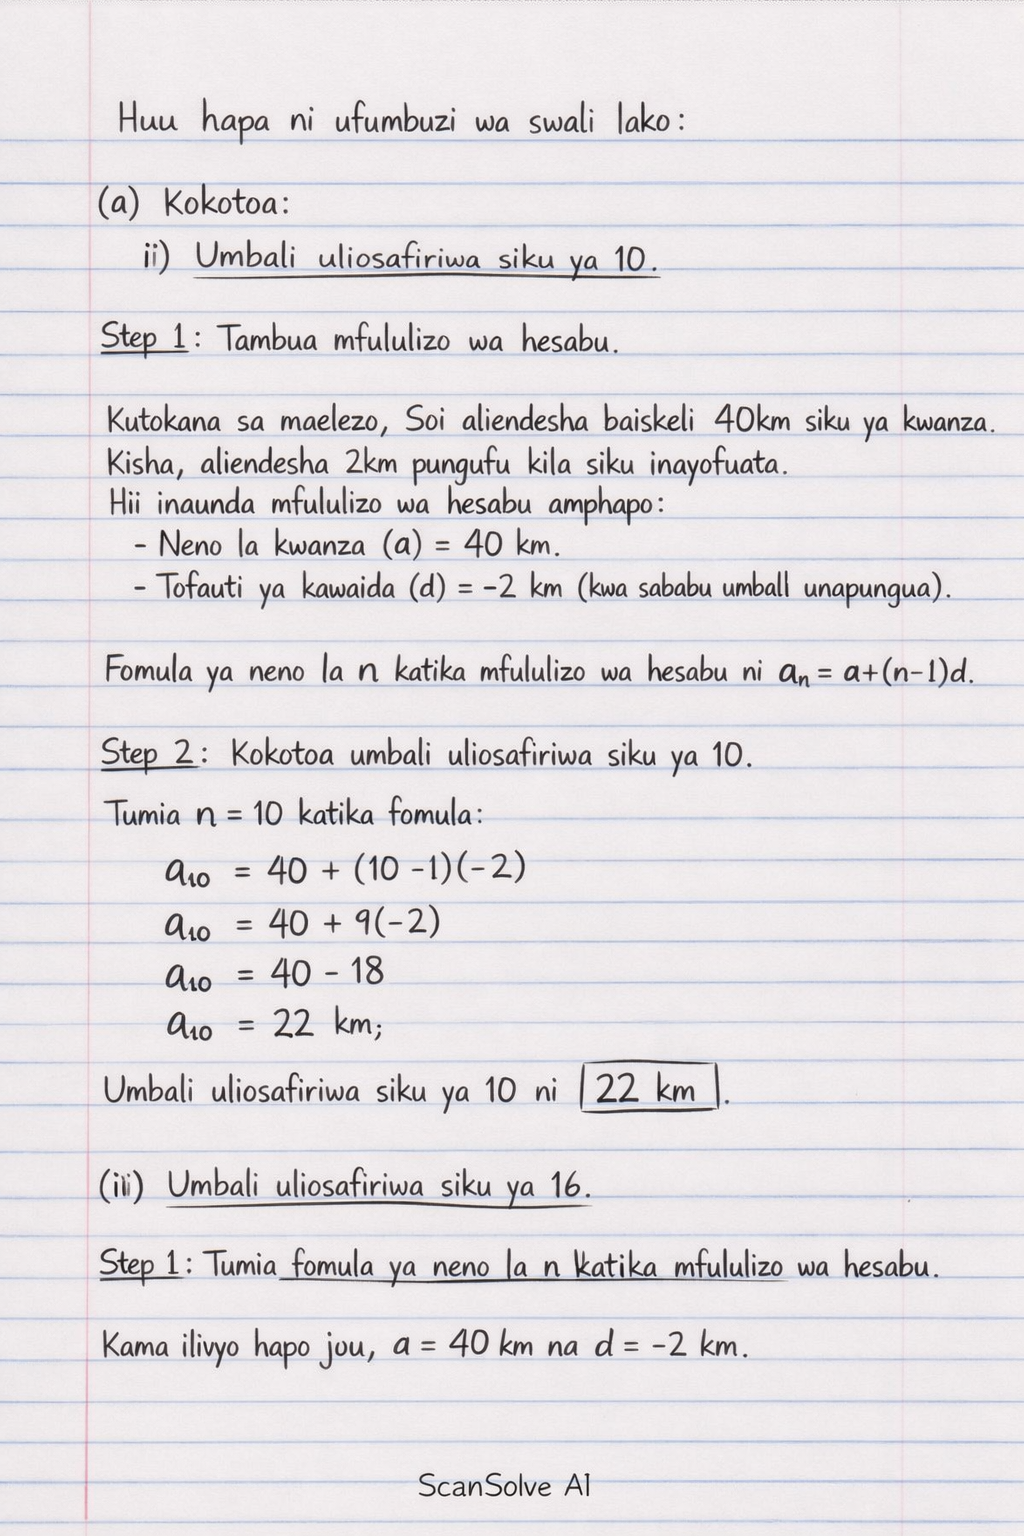 Huu hapa ni ufumbuzi wa swali lako:
(a) Kokotoa:
ii) Umbali uliosafiriwa siku ya 10.
Step 1: Tambua mfululizo wa hesabu.
Kutokana sa maelezo, Soi aliendesha baiskeli 40km siku ya kwanza.
Kisha, aliendesha 2km pungufu kila siku inayofuata.
Hii inaunda mfululizo wa hesabu amphapo:
- Neno la kwanza (a) = 40 km.
- Tofauti ya kawaida (d) = -2 km (kwa sababu umball unapungua).
Fomula ya neno la n katika mfululizo wa hesabu ni aₙ = a+(n-1)d.
Step 2: Kokotoa umbali uliosafiriwa siku ya 10.
Tumia n = 10 katika fomula:
a₁₀ = 40 + (10 -1)(-2)
a₁₀ = 40 + 9(-2)
a₁₀ = 40 - 18
a₁₀ = 22 km;
Umbali uliosafiriwa siku ya 10 ni 22 km.
(iii) Umbali uliosafiriwa siku ya 16.
Step 1: Tumia fomula ya neno la n katika mfululizo wa hesabu.
Kama ilivyo hapo jou, a = 40 km na d = -2 km.
ScanSolve AI